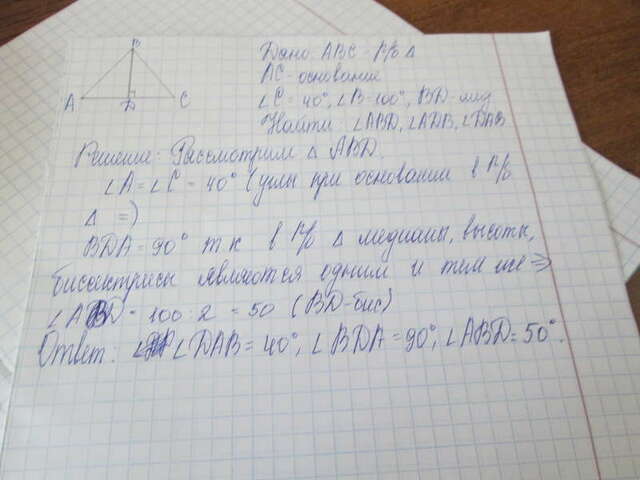 B
A
D
C
Дано: ABC - р/б Δ
AC - основание
∠C = 40°, ∠B = 100°, BD - мед
Найти: ∠ABD, ∠ADB, ∠DAB
Решение: Рассмотрим Δ ABD.
∠A = ∠C = 40° (углы при основании в р/б
Δ =)
BDA = 90° т к в р/б Δ медианы, высоты,
биссектрисы являются одним и тем же ⇒
∠ABD = 100 : 2 = 50 (BD - бис)
Ответ: ∠DAB = 40°, ∠BDA = 90°, ∠ABD = 50°.